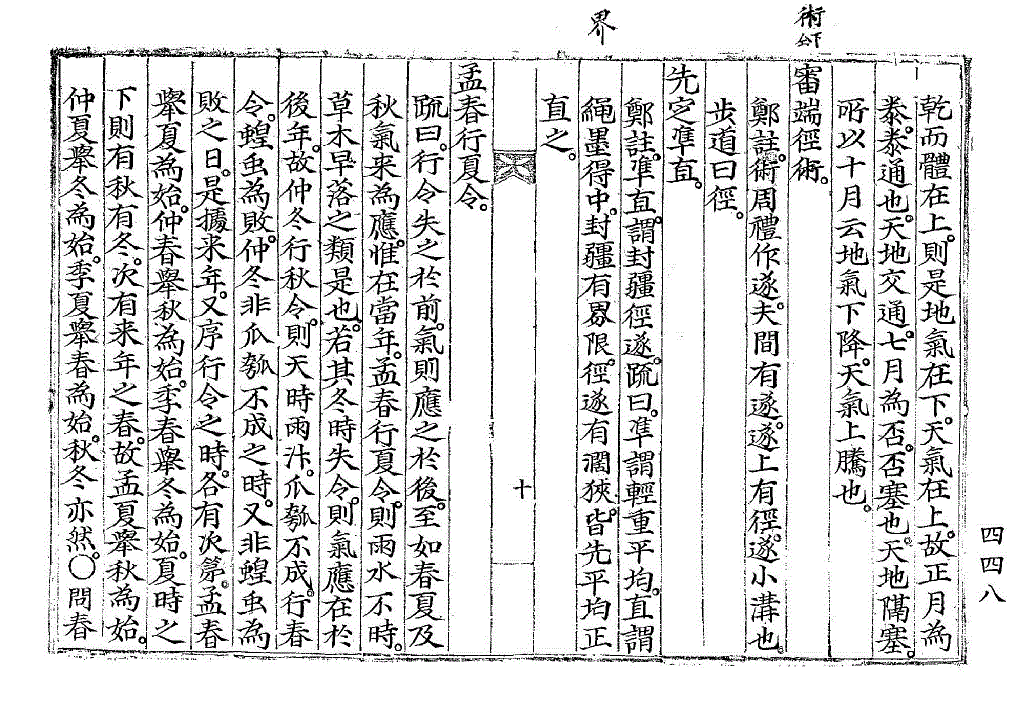 術
界
乾而體在上。則是地氣在下。天氣在上。故正月為
泰。泰通也。天地交通。七月為否。否塞也。天地隔塞。
所以十月云地氣下降。天氣上騰也。
審端徑術。
鄭註。術周禮作遂。夫間有遂。遂上有徑。遂小溝也。
步道曰徑。
先定準直。
鄭註。準直。謂封疆徑遂。疏曰。準謂輕重平均。直謂
繩墨得中。封疆有界限。徑遂有濶狹。皆先平均正
直之。
十
孟春行夏令。
疏曰。行令失之於前。氣則應之於後。至如春夏及
秋氣来為應。惟在當年。孟春行夏令。則雨水不時。
草木早落之類是也。若其冬時失令。則氣應在於
後年。故仲冬行秋令。則天時雨汁。瓜瓠不成。行春
令。蝗虫為敗。仲冬非瓜瓠不成之時。又非蝗虫為
敗之日。是據来年。又序行令之時。各有次第。孟春
舉夏為始。仲春舉秋為始。季春舉冬為始。夏時之
下則有秋有冬。次有来年之春。故孟夏舉秋為始。
仲夏舉冬為始。季夏舉春為始。秋冬亦然。○問春
四四八